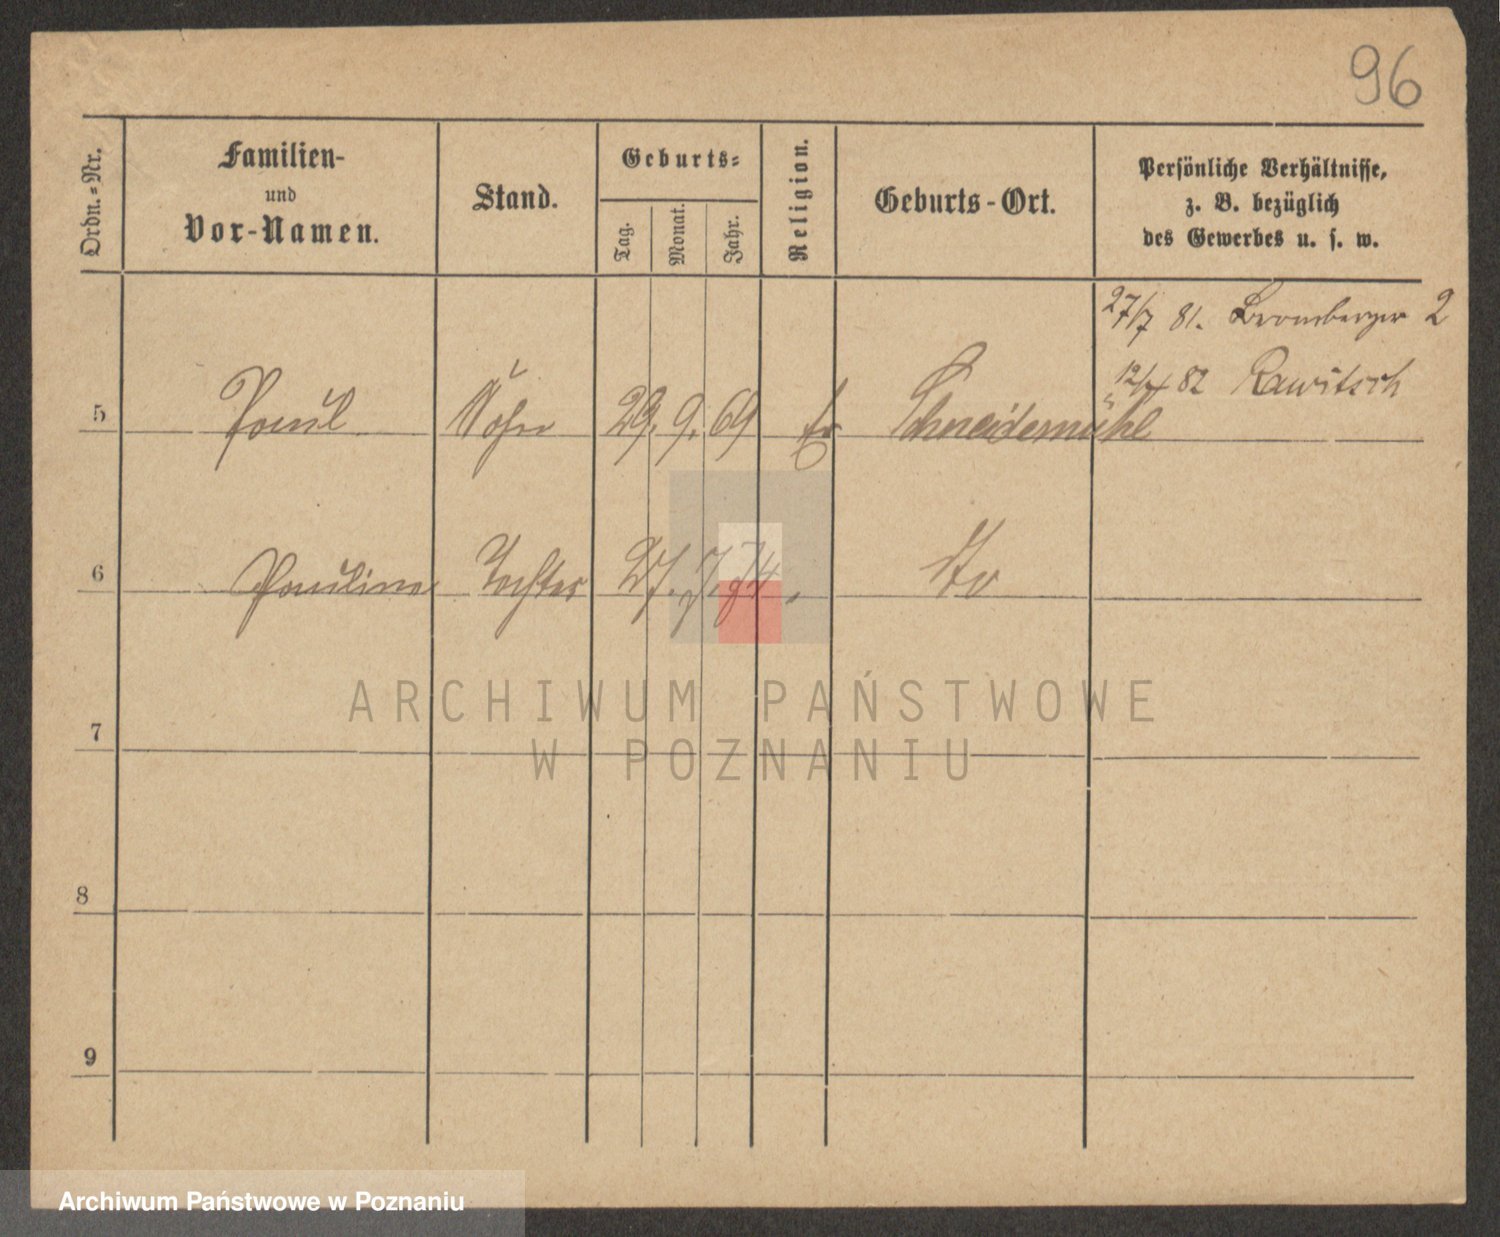 96
Ordn.=Nr.
Familien-
und
Vor-Namen.
Stand.
Geburts=
Tag.
Monat.
Jahr.
Religion.
Geburts-Ort.
Persönliche Verhältnisse,
z. B. bezüglich
des Gewerbes u. s. w.
27/7 81. Bromberger 2
12/4 82 Rawitsch
5 Paul Sohn 29. 9. 69 Schneidemühl
6 Pauline Tochter 27. 7. 74 do
7
8
9
ARCHIWUM PAŃSTWOWE
W POZNANIU
Archiwum Państwowe w Poznaniu